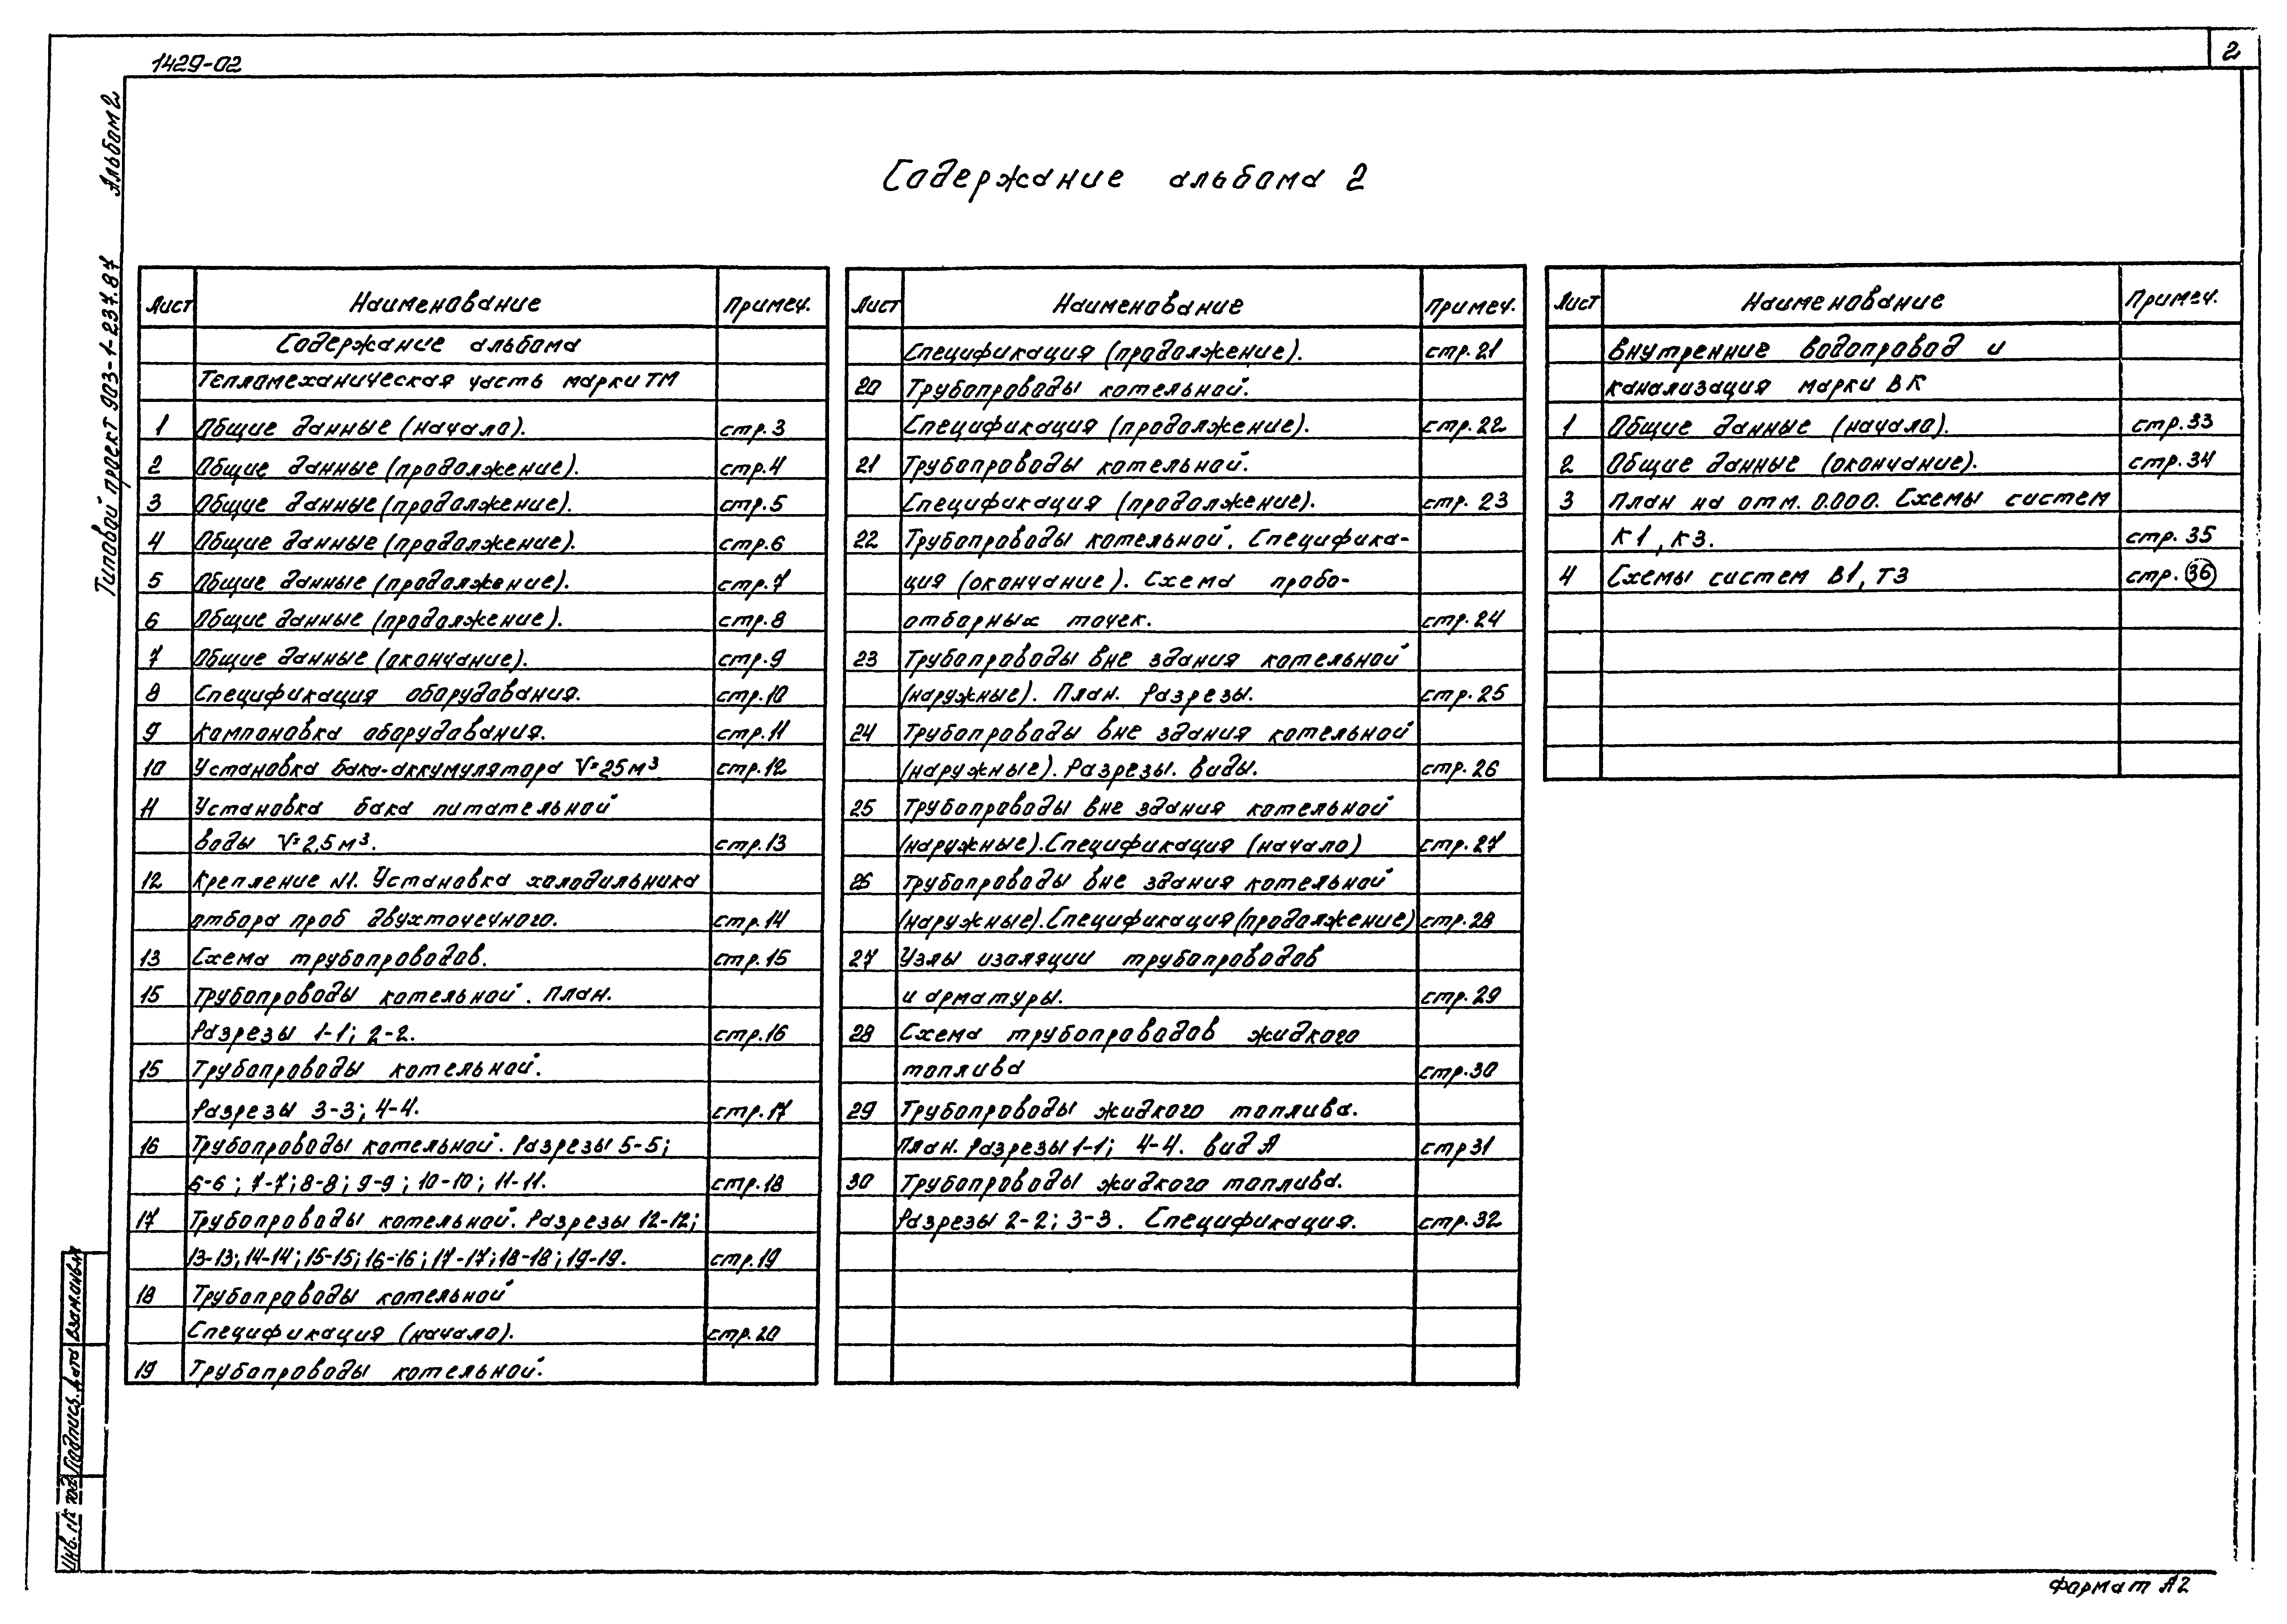 1429-02
2
Альбом 2
Типовой проект 903-1-237.87
Содержание альбома 2
Лист Наименование Примеч.
Содержание альбома
Тепломеханическая часть марки ТМ
1 Общие данные (начало). стр.3
2 Общие данные (продолжение). стр.4
3 Общие данные (продолжение). стр.5
4 Общие данные (продолжение). стр.6
5 Общие данные (продолжение). стр.7
6 Общие данные (продолжение). стр.8
7 Общие данные (окончание). стр.9
8 Спецификация оборудования. стр.10
9 Компоновка оборудования. стр.11
10 Установка бака-аккумулятора V=25м³ стр.12
11 Установка бака питательной
воды V=2,5м³. стр.13
12 Крепление №1. Установка холодильника
отбора проб двухточечного. стр.14
13 Схема трубопроводов. стр.15
15 Трубопроводы котельной. План.
Разрезы 1-1; 2-2. стр.16
15 Трубопроводы котельной.
Разрезы 3-3; 4-4. стр.17
16 Трубопроводы котельной. Разрезы 5-5;
6-6; 7-7; 8-8; 9-9; 10-10; 11-11. стр.18
17 Трубопроводы котельной. Разрезы 12-12;
13-13; 14-14; 15-15; 16-16; 17-17; 18-18; 19-19. стр.19
18 Трубопроводы котельной
Спецификация (начало). стр.20
19 Трубопроводы котельной.
Лист Наименование Примеч.
Спецификация (продолжение). стр.21
20 Трубопроводы котельной.
Спецификация (продолжение). стр.22
21 Трубопроводы котельной.
Спецификация (продолжение). стр. 23
22 Трубопроводы котельной. Специфика-
ция (окончание). Схема пробо-
отборных точек. стр.24
23 Трубопроводы вне здания котельной
(наружные). План. Разрезы. стр.25
24 Трубопроводы вне здания котельной
(наружные). Разрезы. Виды. стр.26
25 Трубопроводы вне здания котельной
(наружные). Спецификация (начало) стр.27
26 Трубопроводы вне здания котельной
(наружные). Спецификация (продолжение) стр.28
27 Узлы изоляции трубопроводов
и арматуры. стр.29
28 Схема трубопроводов жидкого
топлива стр.30
29 Трубопроводы жидкого топлива.
План. Разрезы 1-1; 4-4. Вид А стр31
30 Трубопроводы жидкого топлива.
Разрезы 2-2; 3-3. Спецификация. стр.32
Лист Наименование Примеч.
Внутренние водопровод и
канализация марки ВК
1 Общие данные (начало). стр.33
2 Общие данные (окончание). стр.34
3 План на отм. 0.000. Схемы систем
К1, К3. стр. 35
4 Схемы систем В1, Т3 стр. 36
Инв. № под Подпись. дата Взам.инв.№
Формат А2